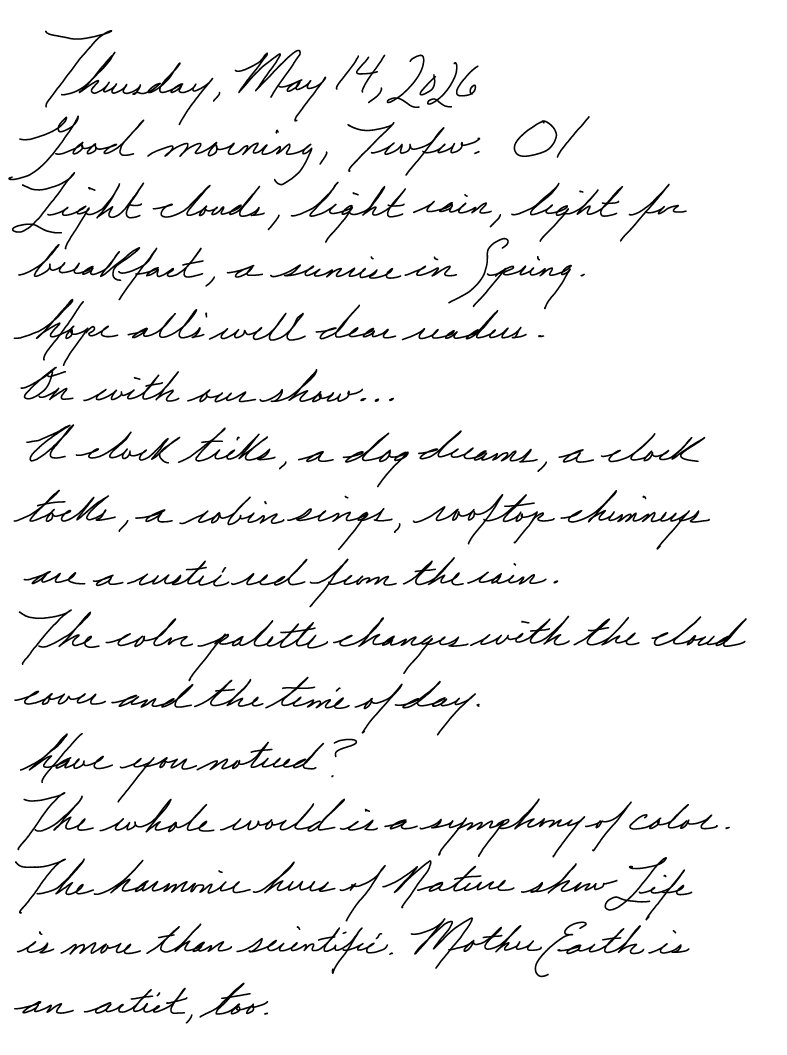 Thursday, May 14, 2026
Good morning, Twfw. 01
Light clouds, light rain, light for
breakfast, a sunrise in Spring.
Hope all's well dear readers.
On with our show...
A clock ticks, a dog dreams, a clock
tocks, a robin sings, rooftop chimneys
are a rustic red from the rain.
The color palette changes with the cloud
cover and the time of day.
Have you noticed?
The whole world is a symphony of color.
The harmonic hues of Nature show Life
is more than scientific. Mother Earth is
an artist, too.